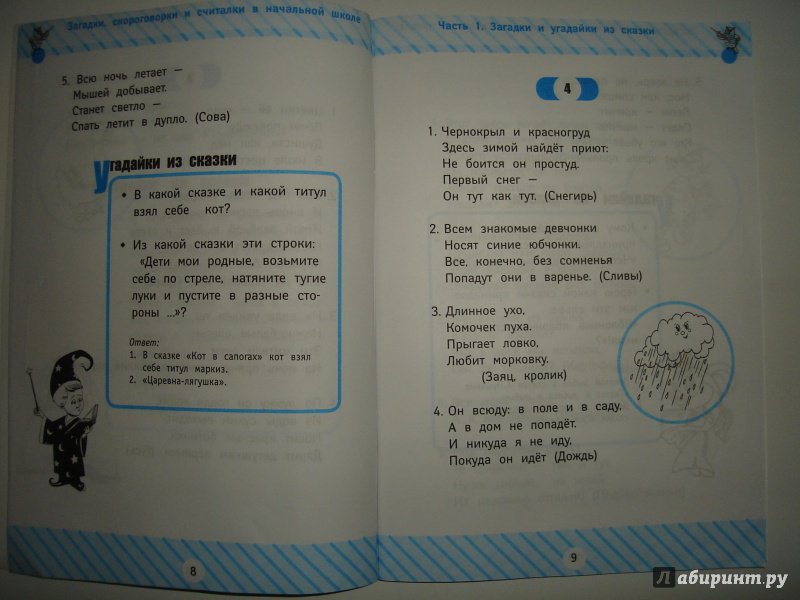 Загадки, скороговорки и считалки в начальной школе
5. Всю ночь летает —
Мышей добывает.
Станет светло —
Спать летит в дупло. (Сова)
Угадайки из сказки
• В какой сказке и какой титул
взял себе кот?
• Из какой сказки эти строки:
«Дети мои родные, возьмите
себе по стреле, натяните тугие
луки и пустите в разные сто-
роны ...»?
Ответ:
1. В сказке «Кот в сапогах» кот взял
себе титул маркиз.
2. «Царевна-лягушка».
8
Часть 1. Загадки и угадайки из сказки
4
1. Чернокрыл и красногруд
Здесь зимой найдёт приют:
Не боится он простуд.
Первый снег —
Он тут как тут. (Снегирь)
2. Всем знакомые девчонки
Носят синие юбчонки.
Все, конечно, без сомненья
Попадут они в варенье. (Сливы)
3. Длинное ухо,
Комочек пуха.
Прыгает ловко,
Любит морковку.
(Заяц, кролик)
4. Он всюду: в поле и в саду,
А в дом не попадёт.
И никуда я не иду,
Покуда он идёт (Дождь)
9
Лабиринт.ру